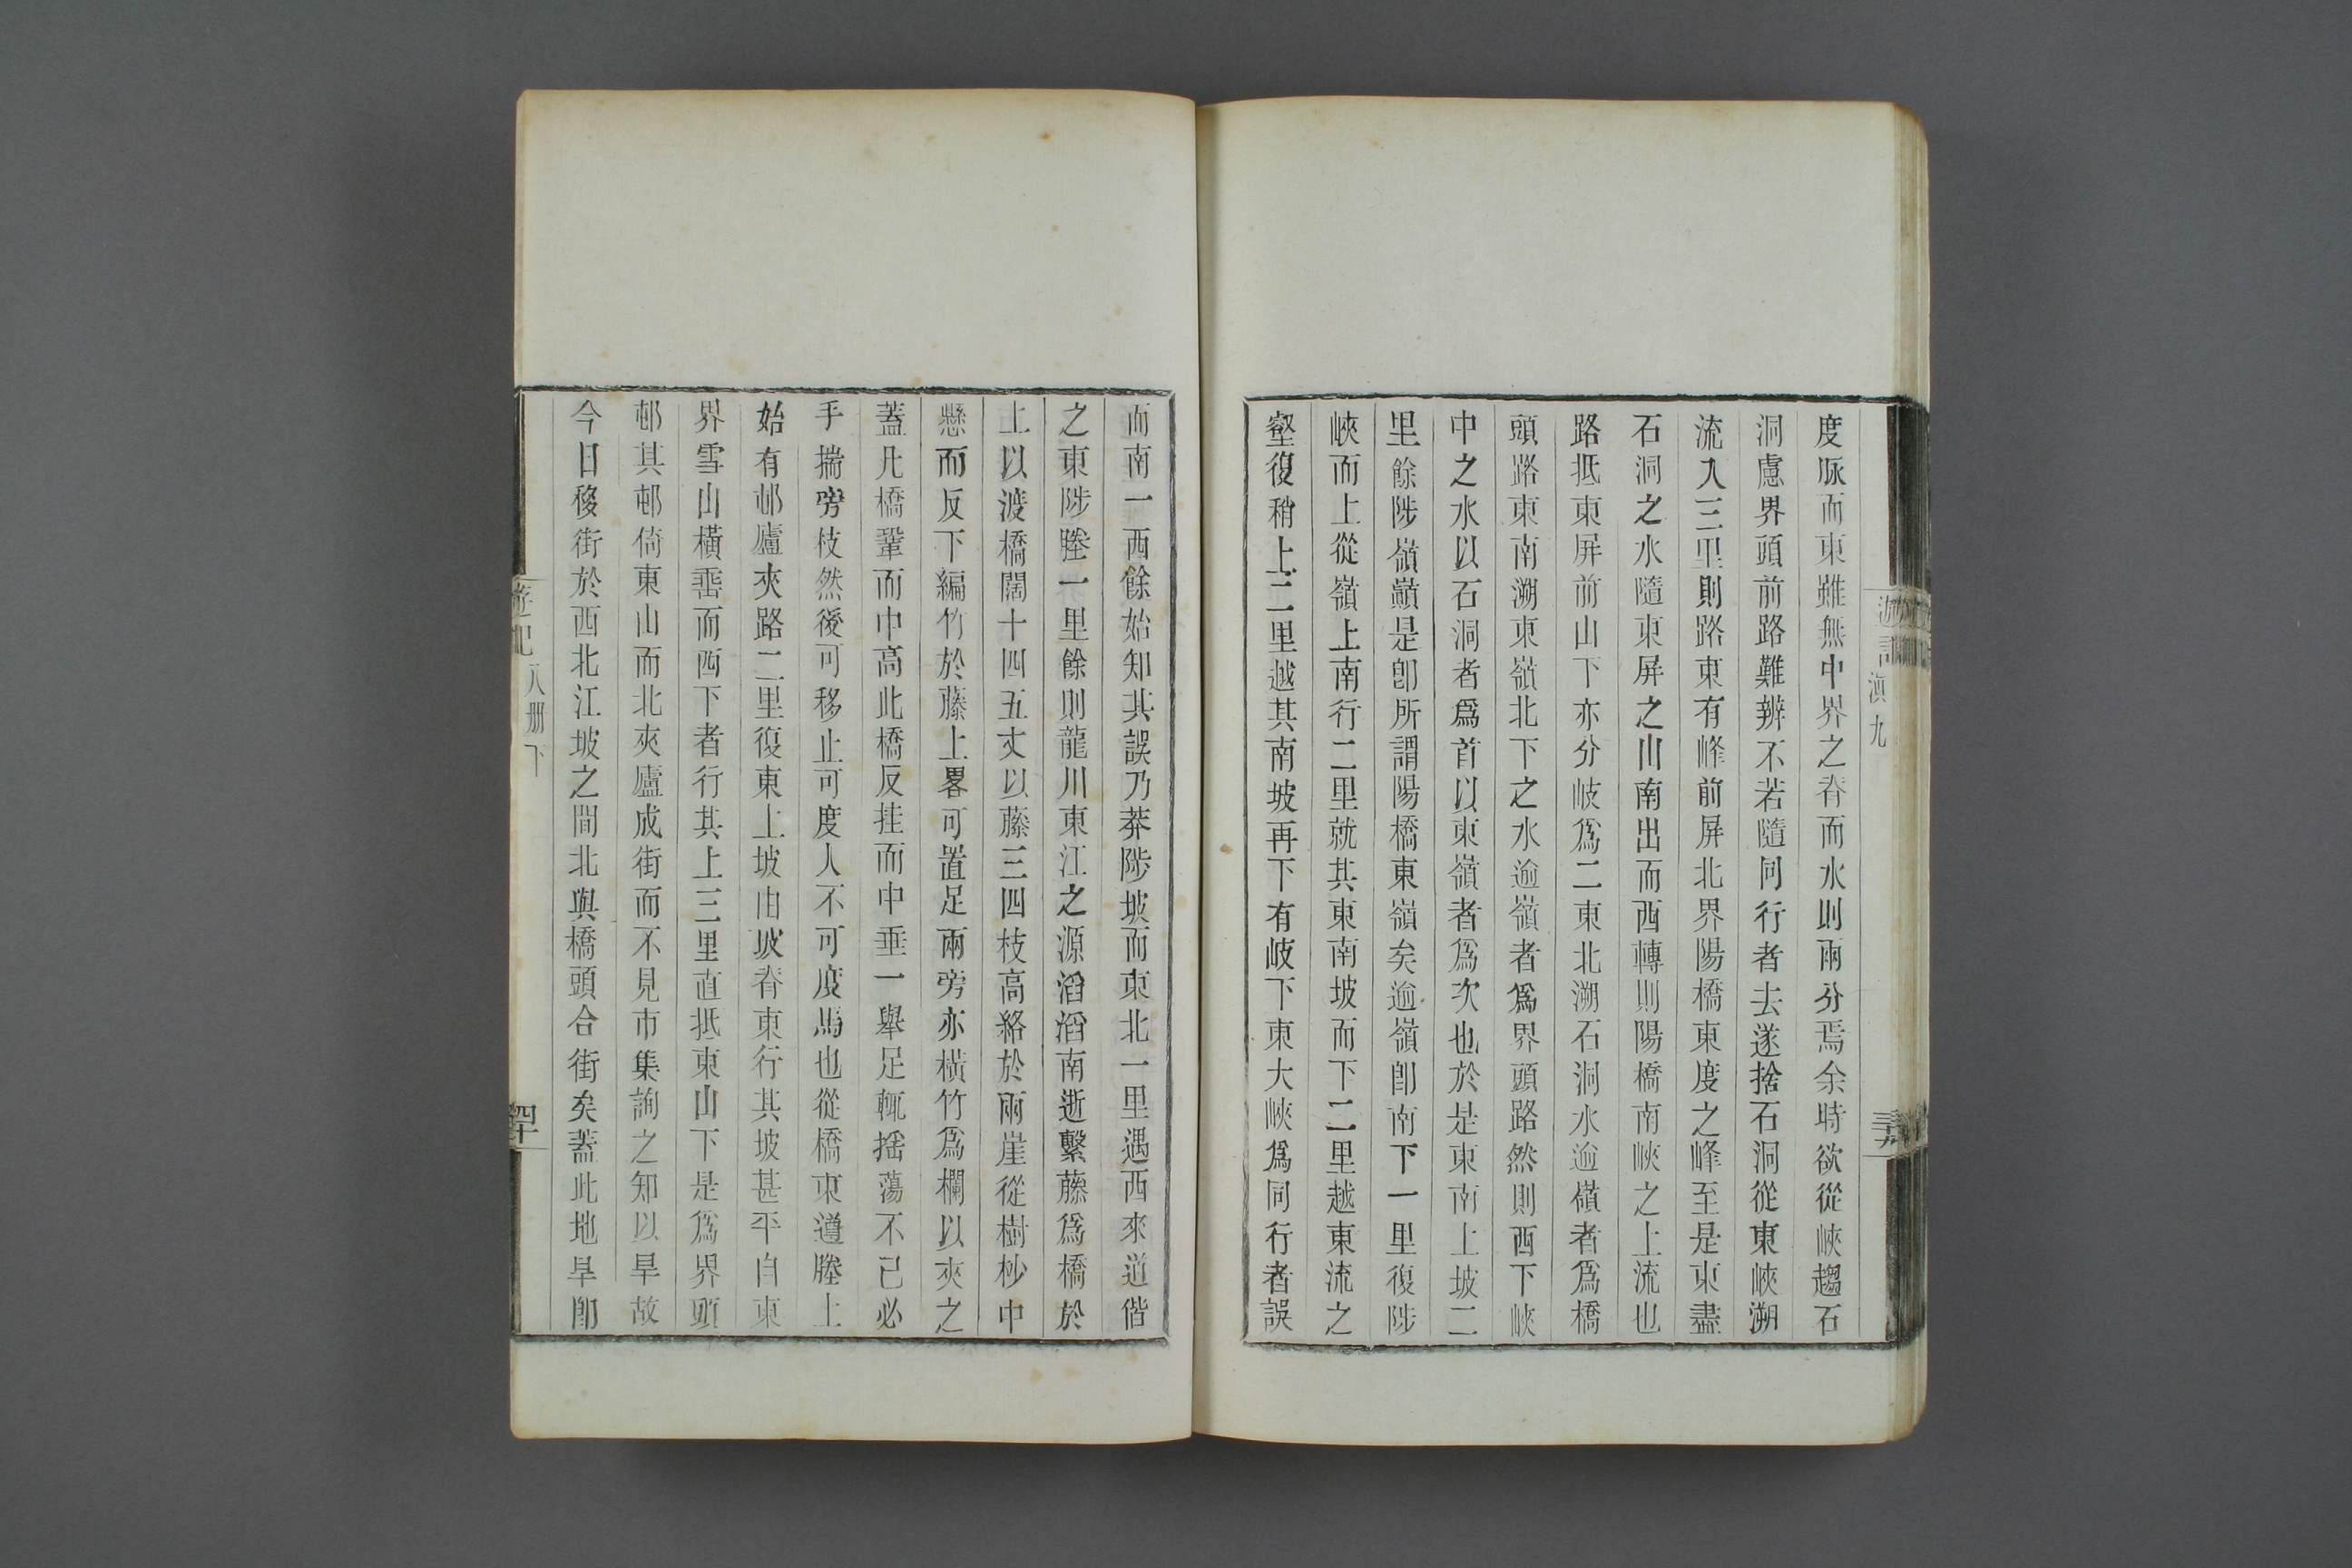 度脉而東雖無中界之脊而水則兩分焉余時欲從峽趨石
洞慮界頭前路難辨不若隨同行者去遂捨石洞從東峽溯
流入三里則路東有峰前屏北界陽橋東度之峰至是東盡
石洞之水隨東屏之山南出而西轉則陽橋南峽之上流也
路抵東屏前山下亦分岐爲二東北溯石洞水逾嶺者爲橋
頭路東南溯東嶺北下之水逾嶺者爲界頭路然則西下峽
中之水以石洞者爲首以東嶺者爲次也於是東南上坡二
里餘陟嶺巔是卽所謂陽橋東嶺矣逾嶺卽南下一里復陟
峽而上從嶺上南行二里就其東南坡而下二里越東流之
壑復稍上二里越其南坡再下有岐下東大峽爲同行者誤
而南一西餘始知其誤乃莽陟坡而東北一里遇西來道偕
之東陟塍一里餘則龍川東江之源滔滔南逝繫藤爲橋於
上以渡橋闊十四五丈以藤三四枝高絡於兩崖從樹杪中
懸而反下編竹於藤上畧可置足兩旁亦橫竹爲欄以夾之
蓋凡橋鞏而中高此橋反挂而中垂一舉足輒搖蕩不已必
手揣旁枝然後可移止可度人不可度馬也從橋東遵塍上
始有邨廬夾路二里復東上坡由坡脊東行其坡甚平自東
界雪山橫垂而西下者行其上三里直抵東山下是爲界頭
邨其邨倚東山而北夾廬成街而不見市集詢之知以旱故
今日移街於西北江坡之間北與橋頭合街矣蓋此地旱卽
遊記
滇九
遊記
八册下
四十